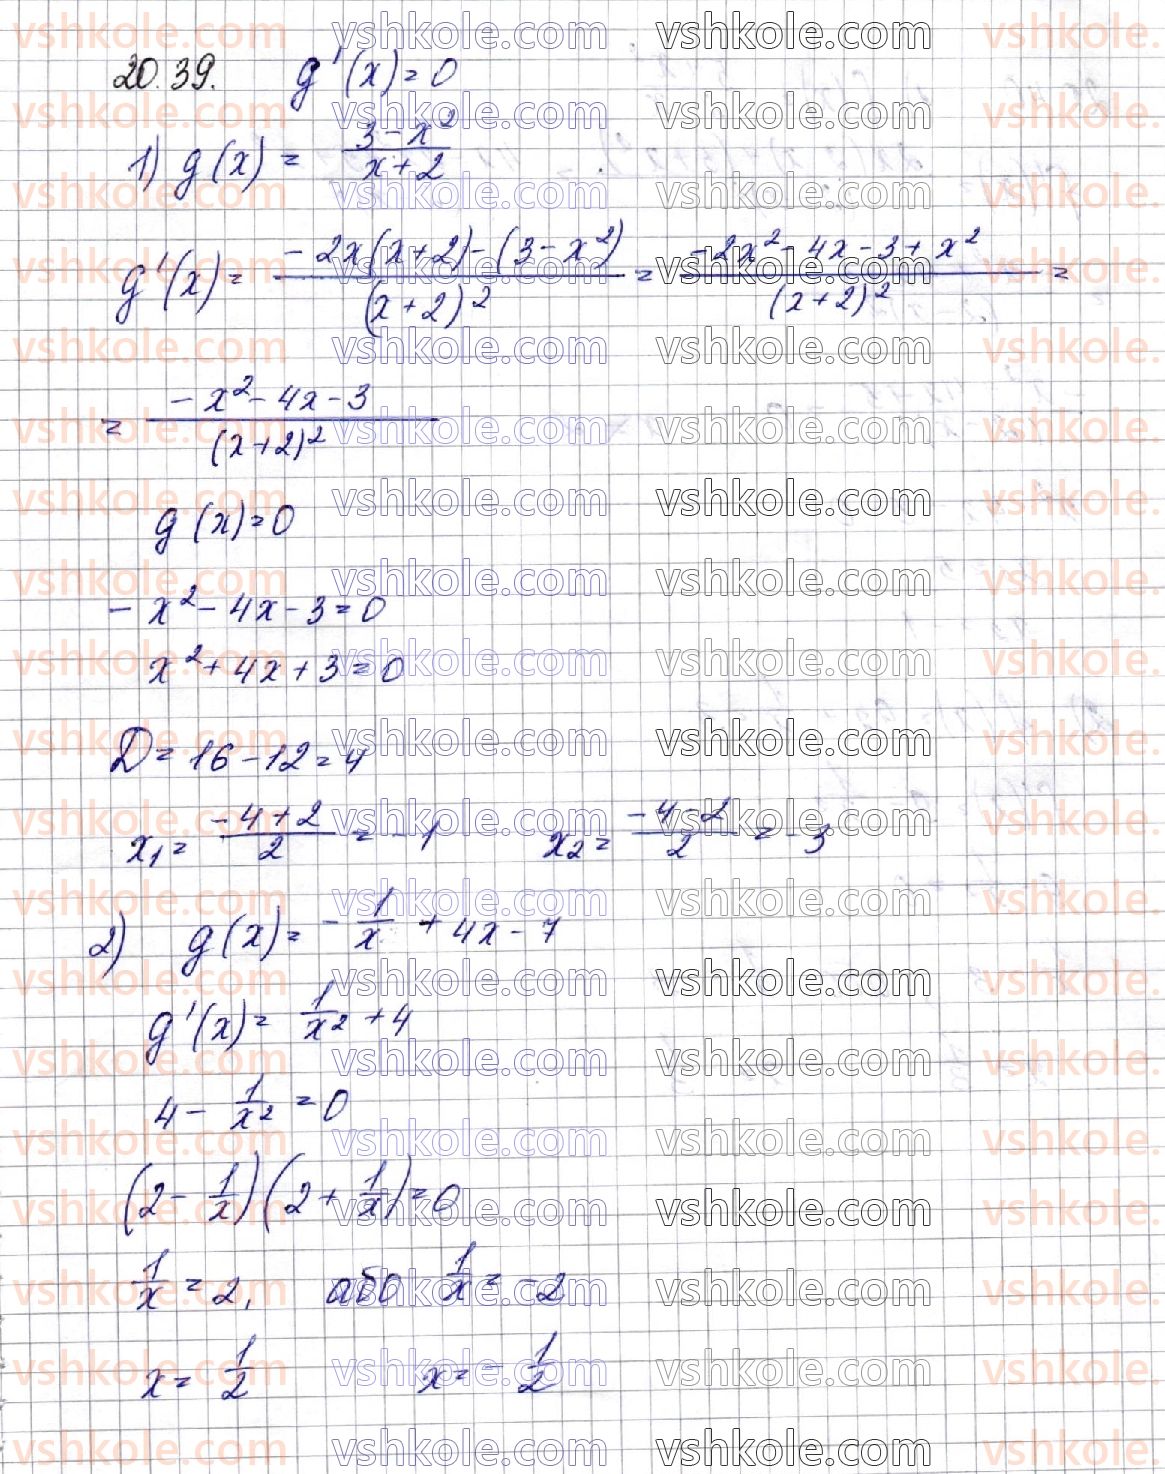 20.39. g'(x)=0
1) g(x) = (3-x²)/(x+2)
g'(x) = (-2x(x+2)-(3-x²))/(x+2)² = (-2x²-4x-3+x²)/(x+2)² =
= (-x²-4x-3)/(x+2)²
g(x)=0
-x²-4x-3=0
x²+4x+3=0
D=16-12=4
x₁ = (-4+2)/2 = -1 x₂ = (-4-2)/2 = -3
2) g(x) = -1/x + 4x-7
g'(x) = 1/x² + 4
4 - 1/x² = 0
(2 - 1/x)(2 + 1/x) = 0
1/x = 2, або 1/x = -2
x = 1/2 x = -1/2
vshkole.com